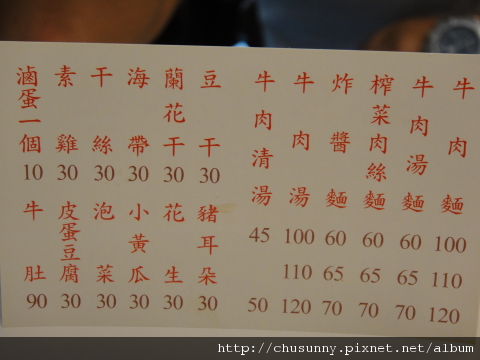 牛肉麵 100 110 120
牛肉湯麵 60 65 70
榨菜肉絲麵 60 65 70
炸醬麵 60 65 70
牛肉湯 100 110 120
牛肉清湯 45 50
豆干 30
蘭花干 30
海帶 30
干絲 30
素雞 30
滷蛋一個 10
豬耳朵 30
花生 30
小黃瓜 30
泡菜 30
皮蛋豆腐 30
牛肚 90
http://chusunny.pixnet.net/album